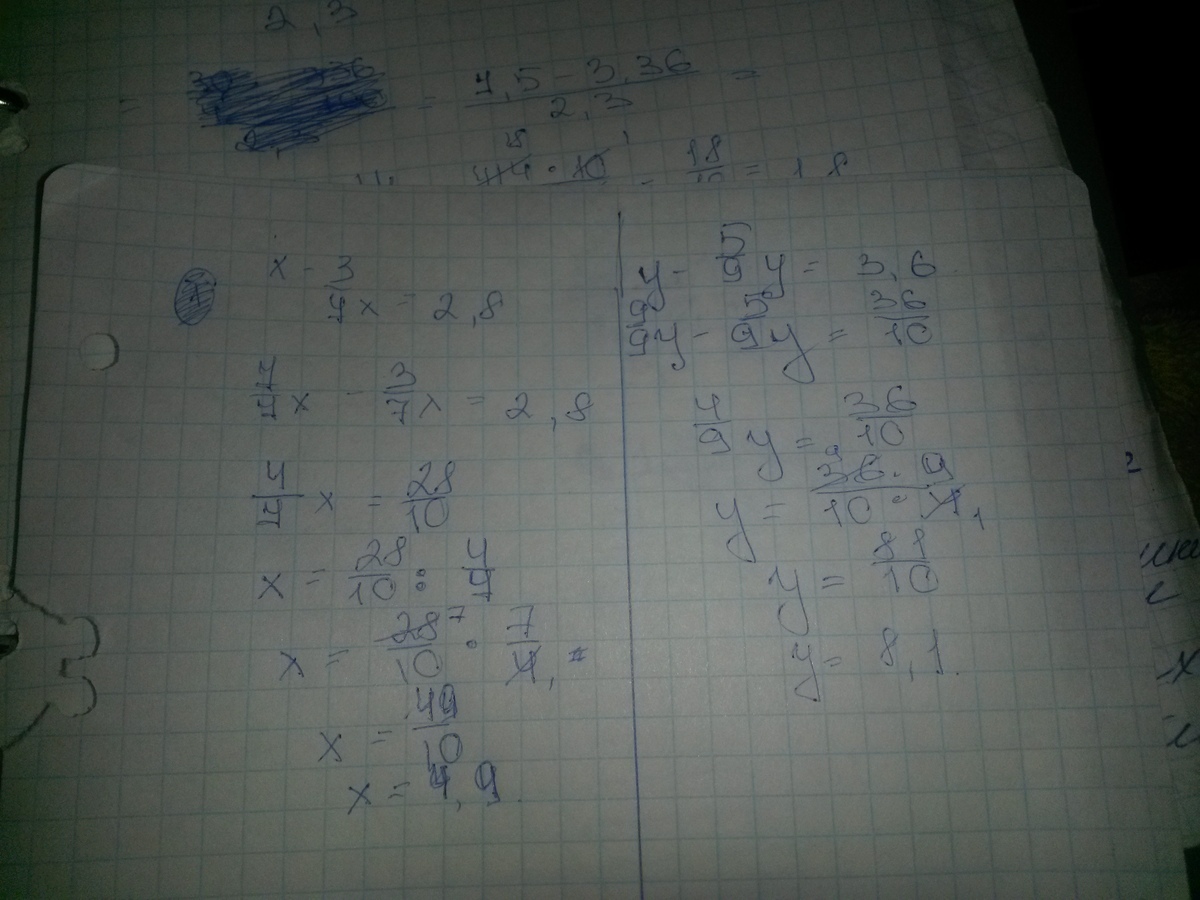 2,3
= = 7,5 - 3,36 / 2,3 =
18/10 = 1,8
x - 3/7x = 2,8
7/7x - 3/7x = 2,8
4/7 x = 28/10
x = 28/10 : 4/7
x = 28/10 7 · 7/4, =
x = 49/10
x = 4,9
y - 5/9 y = 3,6
9/9y - 5/9 y = 36/10
4/9 y = 36/10
y = 9 36 · 9 / 10 · 4 1
y = 81/10
y = 8,1.